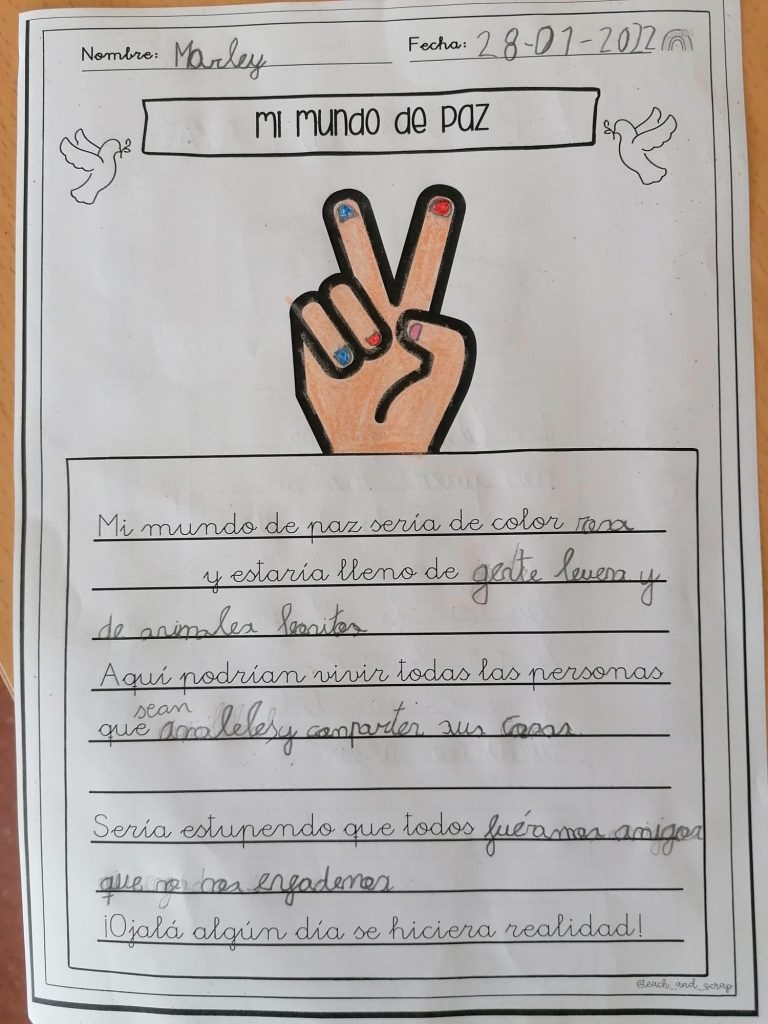 Nombre: Marley Fecha: 28-01-2022
Mi mundo de paz
Mi mundo de paz sería de color rosa
y estaría lleno de gente buena y
de animales bonitos
Aquí podrían vivir todas las personas
sean
que amables y comparten sus cosas
Sería estupendo que todos fuéramos amigos
que no nos
¡Ojalá algún día se hiciera realidad!
@teach_and_scrap